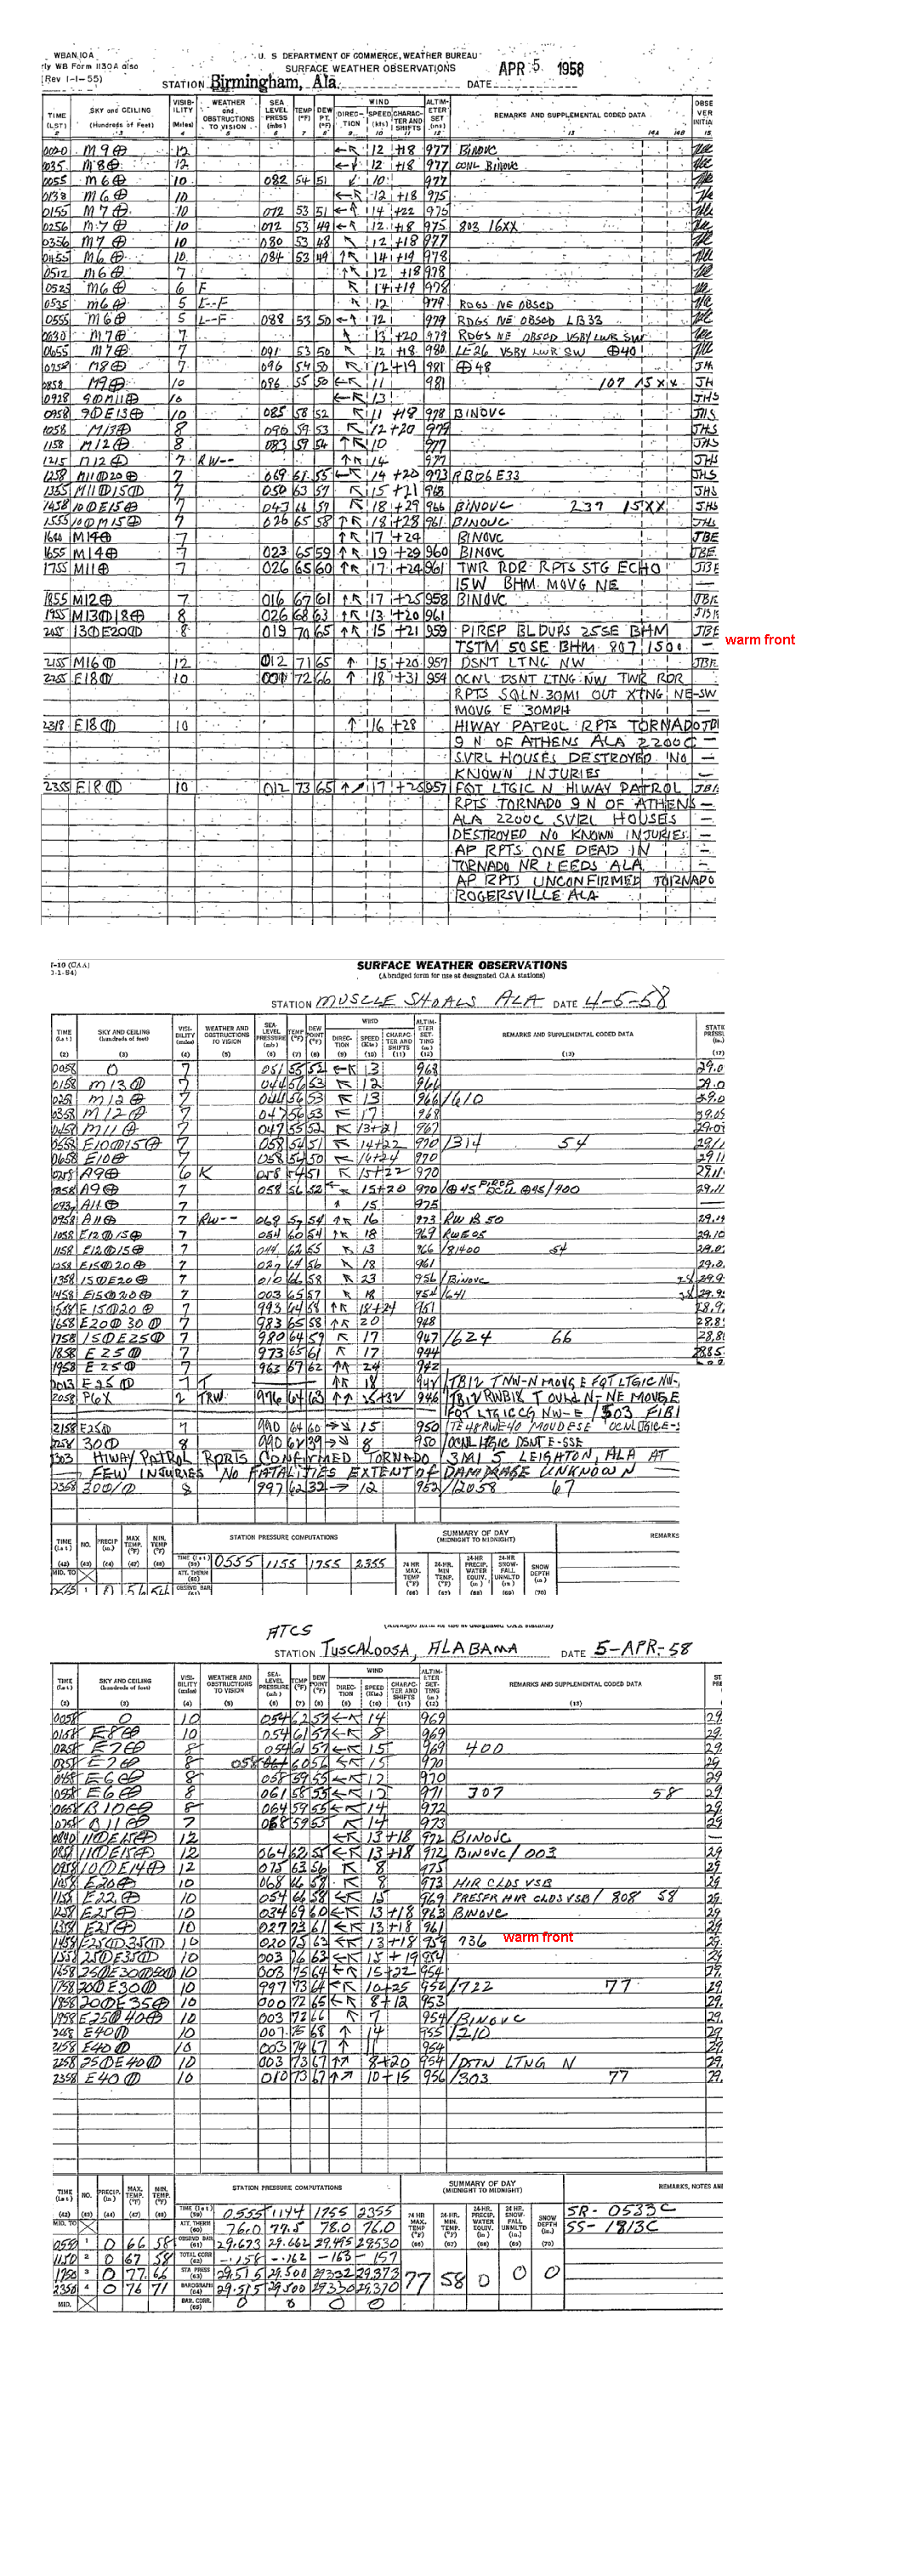 WBAN 10A
U. S DEPARTMENT OF COMMERCE, WEATHER BUREAU
rly WB Form 1130A also
SURFACE WEATHER OBSERVATIONS
APR 5 1958
(Rev 1-1-55)
STATION Birmingham, Ala. DATE
TIME (LST) SKY and CEILING (Hundreds of Feet) VISIBILITY (Miles) WEATHER and OBSTRUCTIONS TO VISION SEA LEVEL PRESS (mbs) TEMP (°F) DEW PT. (°F) WIND DIRECTION SPEED (kts) CHARACTER AND SHIFTS ALTIMETER SET (ins) REMARKS AND SUPPLEMENTAL CODED DATA
0020 M9⊕ 12 ←↖ 12 +18 977 BINOVC
0035 M8⊕ 12 ←↖ 12 +18 977 CONL BINOVC
0055 M6⊕ 10 082 54 51 10 977
0138 M6⊕ 10 ←↖ 12 +18 975
0155 M7⊕ 10 072 53 51 ←↖ 14 +22 975
0256 M7⊕ 10 072 53 49 ←↖ 12 +18 975 803 16XX
0356 M7⊕ 10 080 53 48 ↖ 12 +18 977
0455 M6⊕ 10 084 53 49 ↑↖ 14 +19 978
0512 M6⊕ 7 ↑↖ 12 +18 978
0525 M6⊕ 6 F ↖ 14 +19 978
0535 M6⊕ 5 L--F ↖ 12 979 RDGS NE OBSCD
0555 M6⊕ 5 L--F 088 53 50 ←↖ 12 979 RDGS NE OBSCD LB33
0630 M7⊕ 7 13 +20 979 RDGS NE OBSCD VSBY LWR SW
0655 M7⊕ 7 091 53 50 ↖ 12 +18 980 LE26 VSBY LWR SW ⊕40
0758 M8⊕ 7 096 54 50 ↖ 12 +19 981 ⊕48
0858 M9⊕ 10 096 55 50 ←↖ 11 981 107 15XX
0928 9ⵀM11⊕ 10 ←↖ 13
0958 9ⵀE13⊕ 10 085 58 52 ↖ 11 +18 978 BINOVC
1058 M13⊕ 8 090 59 53 ↖ 12 +20 979
1158 M12⊕ 8 083 59 54 ↑↖ 10 977
1215 M12⊕ 7 RW-- ↑↖ 14 977
1258 M11ⵀ20⊕ 7 069 61 55 ←↖ 14 +20 973 RB06E33
1355 M11ⵀ15ⵀ 7 050 63 57 ↖ 15 +21 968
1458 10ⵀE15⊕ 7 043 66 57 ↖ 18 +29 966 BINOVC 237 15XX
1555 10ⵀM15ⵀ 7 026 65 58 ↑↖ 18 +28 961 BINOVC
1640 M14⊕ 7 ↑↖ 17 +24 BINOVC
1655 M14⊕ 7 023 65 59 ↑↖ 19 +29 960 BINOVC
1755 M11⊕ 7 026 65 60 ↑↖ 17 +24 961 TWR RDR RPTS STG ECHO
15W BHM MOVG NE
1855 M12⊕ 7 016 67 61 ↑↖ 17 +25 958 BINOVC
1955 M13ⵀ18⊕ 8 026 68 63 ↑↖ 13 +20 961
2055 13ⵀE20ⵀ 8 019 70 65 ↑↖ 15 +21 959 PIREP BLDUPS 25SE BHM
warm front
TSTM 50SE BHM 807 1500
2155 M16ⵀ 12 012 71 65 ↑ 15 +20 957 DSNT LTNG NW
2255 E18ⵀ 10 001 72 66 ↑ 18 +31 954 OCNL DSNT LTNG NW TWR RDR
RPTS SQLN 30MI OUT XTNG NE-SW
MOVG E 30MPH
2318 E18ⵀ 10 ↑ 16 +28 HIWAY PATROL RPTS TORNADO
9 N OF ATHENS ALA 2200C
SVRL HOUSES DESTROYED NO
KNOWN INJURIES
2355 E18ⵀ 10 012 73 65 ↑↗ 17 +25 957 FQT LTGIC N HIWAY PATROL
RPTS TORNADO 9 N OF ATHENS
ALA 2200C SVRL HOUSES
DESTROYED NO KNOWN INJURIES
AP RPTS ONE DEAD IN
TORNADO NR LEEDS ALA
AP RPTS UNCONFIRMED TORNADO
ROGERSVILLE ALA
SURFACE WEATHER OBSERVATIONS
(Abridged form for use at designated CAA stations)
STATION MUSCLE SHOALS ALA DATE 4-5-58
TIME (lst) SKY AND CEILING (hundreds of feet) VISIBILITY (miles) WEATHER AND OBSTRUCTIONS TO VISION SEA-LEVEL PRESSURE (mb) TEMP (°F) DEW POINT (°F) WIND DIRECTION SPEED (kts) CHARACTER AND SHIFTS ALTIMETER SETTING (in) REMARKS AND SUPPLEMENTAL CODED DATA
0058 O 7 051 55 52 ←↖ 13 968
0158 M13ⵀ 7 044 56 53 ↖ 12 966
0258 M12⊕ 7 044 56 53 ↖ 13 966 /610
0358 M12⊕ 7 047 56 53 ↖ 17 968
0458 M11⊕ 7 047 55 52 ↖ 13+21 967
0558 E10ⵀ15⊕ 7 058 54 51 ↖ 14+22 970 /314 54
0658 E10⊕ 7 058 54 50 ↖ 14+24 970
0758 A9⊕ 6 K 058 54 51 ↖ 15+22 970
0858 A9⊕ 7 058 56 52 15+20 970
A11⊕ 15 975
0958 A11⊕ 7 RW-- 068 57 54 ↑↖ 16 973 RW B 50
1058 E12ⵀ15⊕ 7 054 60 54 ↑↖ 18 969 RWE05
1158 E12ⵀ15⊕ 7 044 62 55 ↖ 13 966 /81400 54
1258 E15ⵀ20⊕ 7 027 64 56 ↖ 18 961
1358 15ⵀE20⊕ 7 010 66 58 ↖ 23 956 /BINOVC
1458 E15ⵀ20⊕ 7 003 65 57 ↖ 18 954 /641
1558 E15ⵀ20⊕ 7 993 64 58 ↑↖ 18+24 951
1658 E20ⵀ30ⵀ 7 983 65 58 ↑↖ 20 948
1758 15ⵀE25ⵀ 7 980 64 59 ↖ 17 947 /624 66
1858 E25ⵀ 7 973 65 61 ↖ 17 944
1958 E25ⵀ 7 963 67 62 ↑↖ 24 942
2013 E25ⵀ 7 T ↑↖ 18 TB12 TNW-N MOVG E FQT LTGIC NW-
2058 P6X 2 TRW 976 64 63 ↑↑ 25+32 946 TB12 RWB18 T OVHD N-NE MOVG E
FQT LTGICCG NW-E /503
2158 E25ⵀ 7 990 64 60 →↘ 15 950 TE48RWE40 MOVD ESE OCNL LTGIC E-
2258 30ⵀ 8 990 62 39 →↘ 8 950 /OCNL LTGIC DSNT E-SSE
HIWAY PATROL RPRTS CONFIRMED TORNADO 3MI S LEIGHTON, ALA AT
FEW INJURIES NO FATALITIES EXTENT OF DAMRAGE UNKNOWN
2358 300/ⵀ 8 997 62 32 → 12 952 /12058 67
STATION PRESSURE COMPUTATIONS
SUMMARY OF DAY (MIDNIGHT TO MIDNIGHT)
REMARKS
TIME (lst) 0555 1155 1755 2355
ATCS
STATION TUSCALOOSA, ALABAMA DATE 5-APR-58
TIME (lst) SKY AND CEILING (hundreds of feet) VISIBILITY (miles) WEATHER AND OBSTRUCTIONS TO VISION SEA-LEVEL PRESSURE (mb) TEMP (°F) DEW POINT (°F) WIND DIRECTION SPEED (Kts) CHARACTER AND SHIFTS ALTIMETER SETTING (in) REMARKS AND SUPPLEMENTAL CODED DATA
0058 O 10 054 62 57 ←↖ 14 969
0158 E8⊕ 10 054 61 57 ←↖ 8 969
0258 E7⊕ 8 054 61 57 ←↖ 15 969 400
0358 E7⊕ 8 058 60 56 ←↖ 15 970
0458 E6⊕ 8 058 59 55 ←↖ 12 970
0558 E6⊕ 8 061 58 55 ←↖ 12 971 307 58
0658 B10⊕ 8 064 59 55 ←↖ 14 972
0758 B11⊕ 7 068 59 55 ↖ 14 973
0840 11ⵀE15⊕ 12 ←↖ 13+18 972 BINOVC
0858 11ⵀE15⊕ 12 064 62 55 ←↖ 13+18 972 BINOVC/003
0958 10ⵀE14⊕ 12 075 63 56 ↖ 8 975
1058 E20⊕ 10 068 66 58 ↖ 8 973 HIR CLDS VSB
1158 E22⊕ 10 054 66 58 ←↖ 15 969 PRESFR HIR CLDS VSB/ 808 58
1258 E25⊕ 10 034 69 60 ←↖ 13+18 963 BINOVC
1358 E25⊕ 10 027 73 61 ←↖ 13+18 961
1458 E25ⵀ35ⵀ 10 020 75 63 ←↖ 13+18 959 736 warm front
1558 25ⵀE35ⵀ 10 003 76 63 ←↖ 15+19 954
1658 25ⵀE30ⵀ50ⵀ 10 003 75 64 ←↖ 15+22 954
1758 20ⵀE30ⵀ 10 997 73 64 ←↖ 10+25 952 /722 77
1858 20ⵀE35⊕ 10 000 72 65 ←↖ 8+12 953
1958 E25ⵀ40⊕ 10 003 72 66 ↖ 7 954 /BINOVC
2058 E40ⵀ 10 007 75 68 ↑ 14 955 /210
2158 E40ⵀ 10 003 74 67 ↑ 11 954
2258 25ⵀE40ⵀ 10 003 73 67 ↑↗ 8+20 954 /DSTN LTNG N
2358 E40ⵀ 10 010 73 67 ↑↗ 10+15 956 /303 77
STATION PRESSURE COMPUTATIONS
SUMMARY OF DAY (MIDNIGHT TO MIDNIGHT)
REMARKS, NOTES AND
TIME (lst) 0555 1144 1755 2355
SR- 0533C
ATT. THERM 76.0 77.5 78.0 76.0
SS- 1813C
0550 1 0 66 58 29.673 29.662 29.495 29.530
1150 2 0 67 58 TOTAL CORR -.158 -.162 -163 -157
1750 3 0 77 66 STA PRESS 29.515 29.500 29.332 29.373 77 58 0 0 0
2350 4 0 76 71 BAROGRAPH 29.515 29.500 29.330 29.370
MID. BAR. CORR. 0 0 0 0